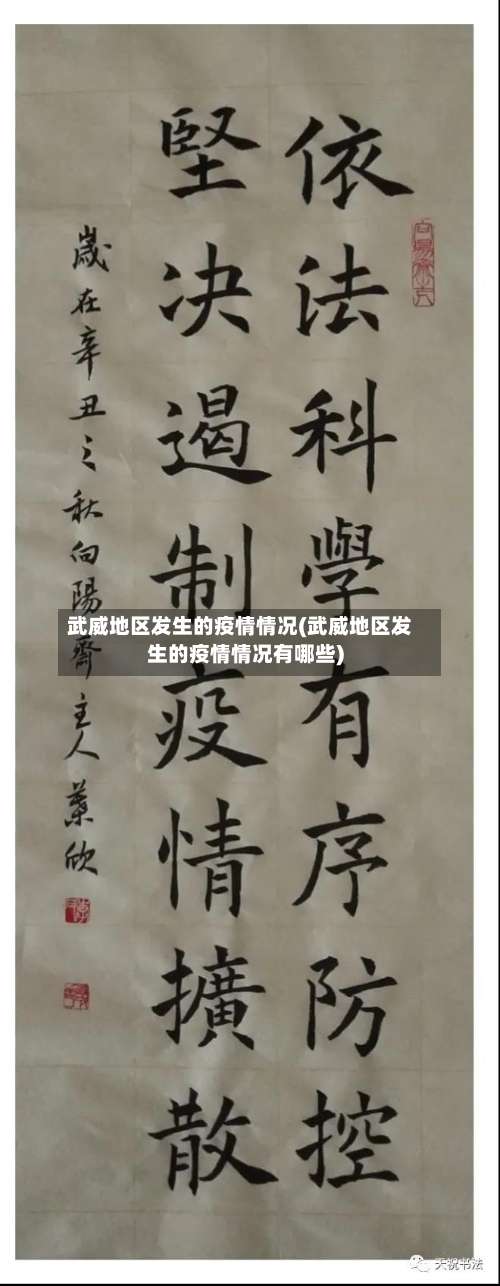 依法科學有序防控
堅决遏制疫情擴散
歲在辛丑之秋向陽齋主人葉欣
武威地区发生的疫情情况(武威地区发
生的疫情情况有哪些)
天祝书法